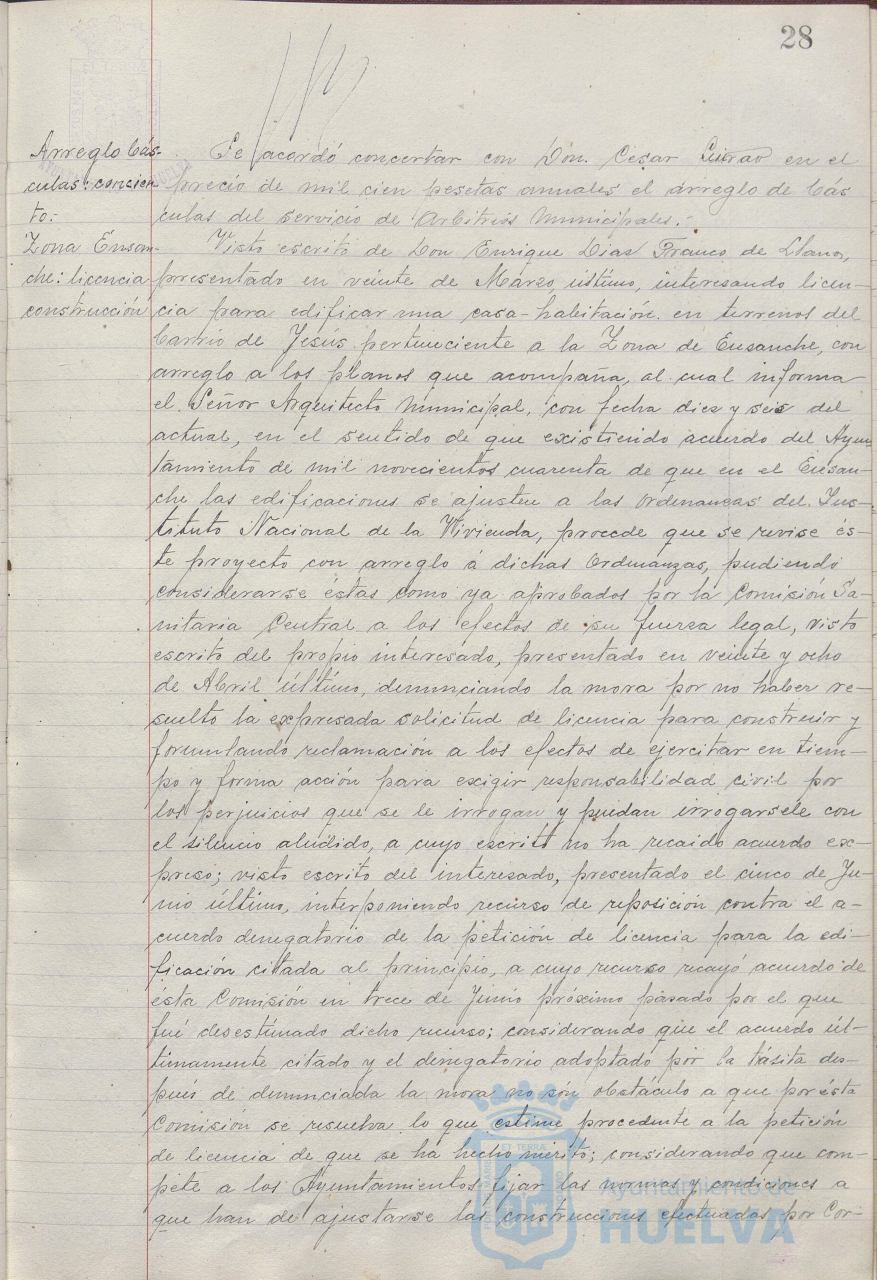 28
Arreglo bás-
culas: concier
to:-
Se acordó concertar con Don. Cesar en el
precio de mil cien pesetas anuales el arreglo de bás
culas del servicio de Arbitrios Municipales.-
Zona Ensan-
che: licencia
construcción
Visto escrito de Don Enrique Dias Franco de Llano,
presentado en veinte de Marzo, último, interesando licen-
cia para edificar una casa-habitación. en terrenos del
barrio de Jesús perteneciente a la Zona de Ensanche, con
arreglo a los planos que acompaña, al cual informa
el. Señor Arquitecto Municipal, con fecha diez y seis del
actual, en el sentido de que existiendo acuerdo del Ayun
tamiento de mil novecientos cuarenta de que en el Ensan-
che las edificaciones se ajusten a las Ordenanzas del. Ins-
tituto Nacional de la Vivienda, procede que se revise és-
te proyecto con arreglo á dichas Ordenanzas, pudiendo
considerarse éstas como ya aprobados por la Comisión Sa-
nitaria Central a los efectos de su fuerza legal, visto
escrito del propio interesado, presentado en veinte y ocho
de Abril último, denunciando la mora por no haber re-
suelto la expresada solicitud de licencia para construir y
formulando reclamación a los efectos de ejercitar en tiem-
po y forma acción para exigir responsabilidad civil por
los perjuicios que se le irrogan y puedan irrogarsele con
el silencio aludido, a cuyo escrito no ha recaido acuerdo ex-
preso; visto escrito del interesado, presentado el cinco de Ju-
nio último, interponiendo recurso de reposición contra el a-
cuerdo denegatorio de la petición de licencia para la edi-
ficación citada al principio, a cuyo recurso recayó acuerdo de
ésta Comisión en trece de Junio próximo pasado por el que
fué desestimado dicho recurso; considerando que el acuerdo úl-
timamente citado y el denegatorio adoptado por la tásita des-
pués de denunciada la mora no són obstáculo a que por ésta
Comisión se resuelva lo que estime procedente a la petición
de licencia de que se ha hecho mérito; considerando que com-
pete a los Ayuntamientos fijar las normas y condiciones a
que han de ajustarse las construcciones efectuadas por Cor-
Ayuntamiento de
HUELVA